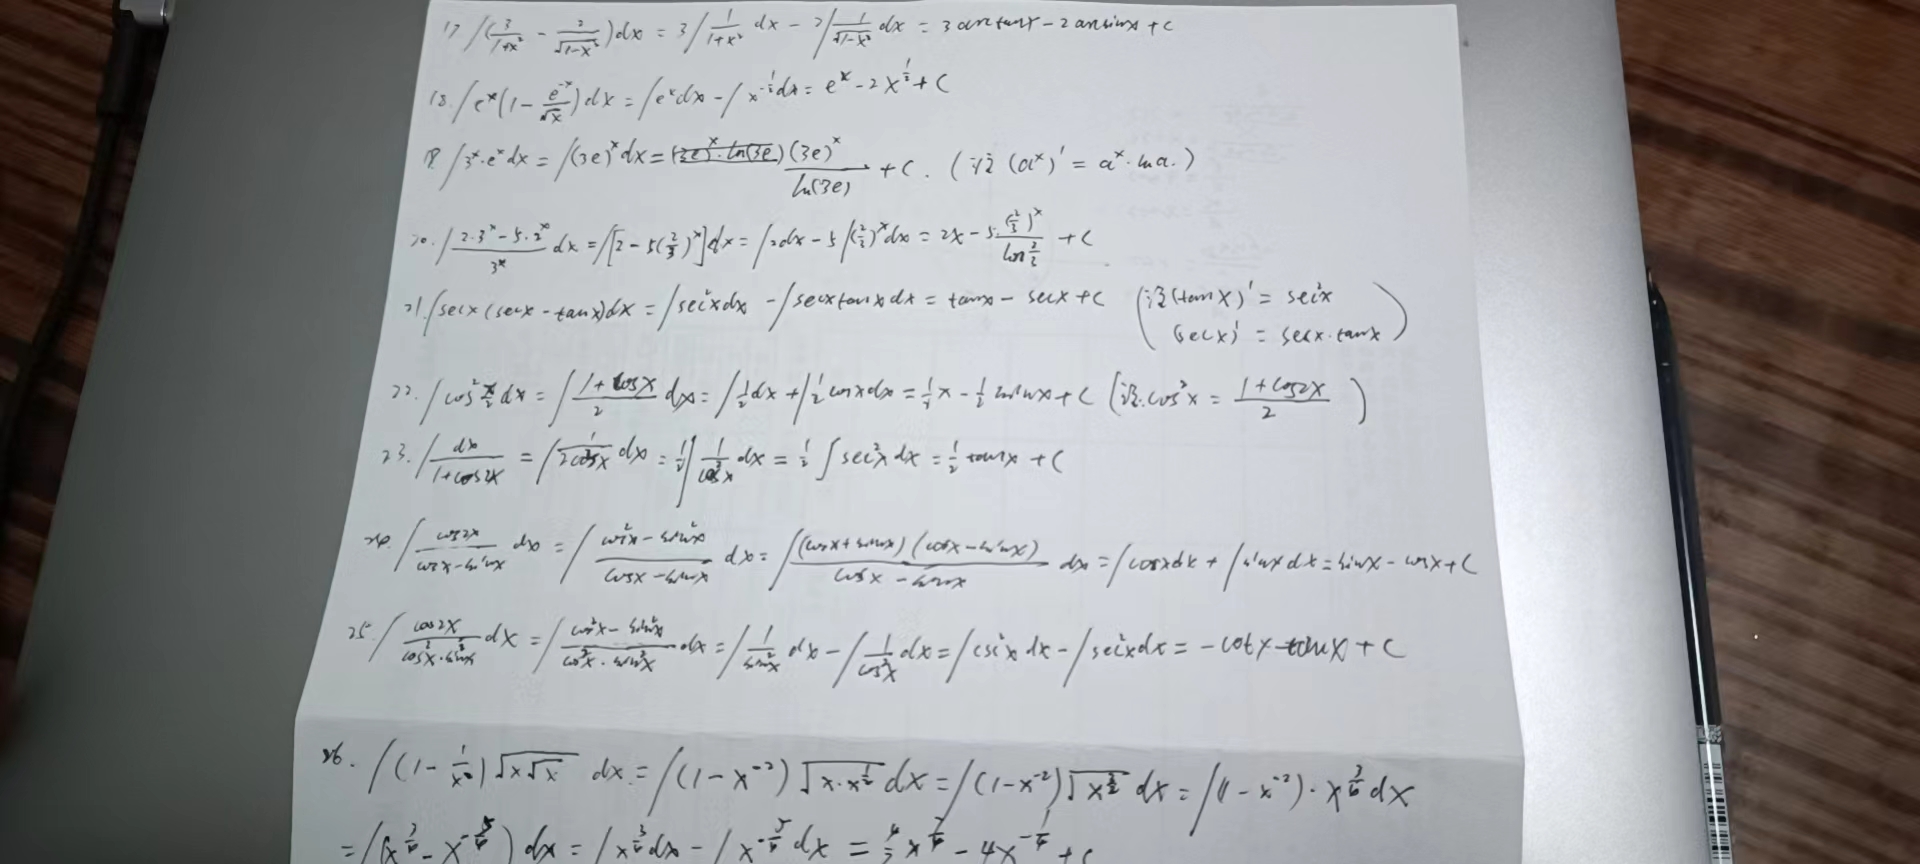 17. ∫(3/(1+x²) - 2/√(1-x²))dx = 3∫1/(1+x²) dx - 2∫1/√(1-x²) dx = 3arctanx - 2arcsinx + C
18. ∫e^x(1 - e^(-x)/√x)dx = ∫e^x dx - ∫x^(-1/2)dx = e^x - 2x^(1/2) + C
19. ∫3^x·e^x dx = ∫(3e)^x dx = (3e)^x/ln(3e) + C. (注 (a^x)' = a^x·lna.)
20. ∫(2·3^x - 5·2^x)/3^x dx = ∫[2 - 5(2/3)^x]dx = ∫2dx - 5∫(2/3)^x dx = 2x - 5·(2/3)^x/ln(2/3) + C
21. ∫secx(secx - tanx)dx = ∫sec²xdx - ∫secxtanxdx = tanx - secx + C (注(tanx)' = sec²x
(secx)' = secx·tanx)
22. ∫cos²(x/2)dx = ∫(1+cosx)/2 dx = ∫1/2dx + ∫1/2cosxdx = 1/2x - 1/2sinx + C (注.cos²x = (1+cos2x)/2)
23. ∫dx/(1+cos2x) = ∫1/(2cos²x)dx = 1/2∫1/cos²x dx = 1/2∫sec²xdx = 1/2tanx + C
24. ∫cos2x/(cosx-sinx) dx = ∫(cos²x-sin²x)/(cosx-sinx) dx = ∫(cosx+sinx)(cosx-sinx)/(cosx-sinx) dx = ∫cosxdx + ∫sinxdx = sinx - cosx + C
25. ∫cos2x/(cos²x·sin²x)dx = ∫(cos²x-sin²x)/(cos²x·sin²x)dx = ∫1/sin²x dx - ∫1/cos²x dx = ∫csc²xdx - ∫sec²xdx = -cotx - tanx + C
26. ∫(1 - 1/x²)√(x√x) dx = ∫(1-x^(-2))√(x·x^(1/2))dx = ∫(1-x^(-2))√(x^(3/2)) dx = ∫(1-x^(-2))·x^(3/4)dx
= ∫(x^(3/4) - x^(-5/4))dx = ∫x^(3/4)dx - ∫x^(-5/4)dx = 4/7x^(7/4) - 4x^(-1/4) + C